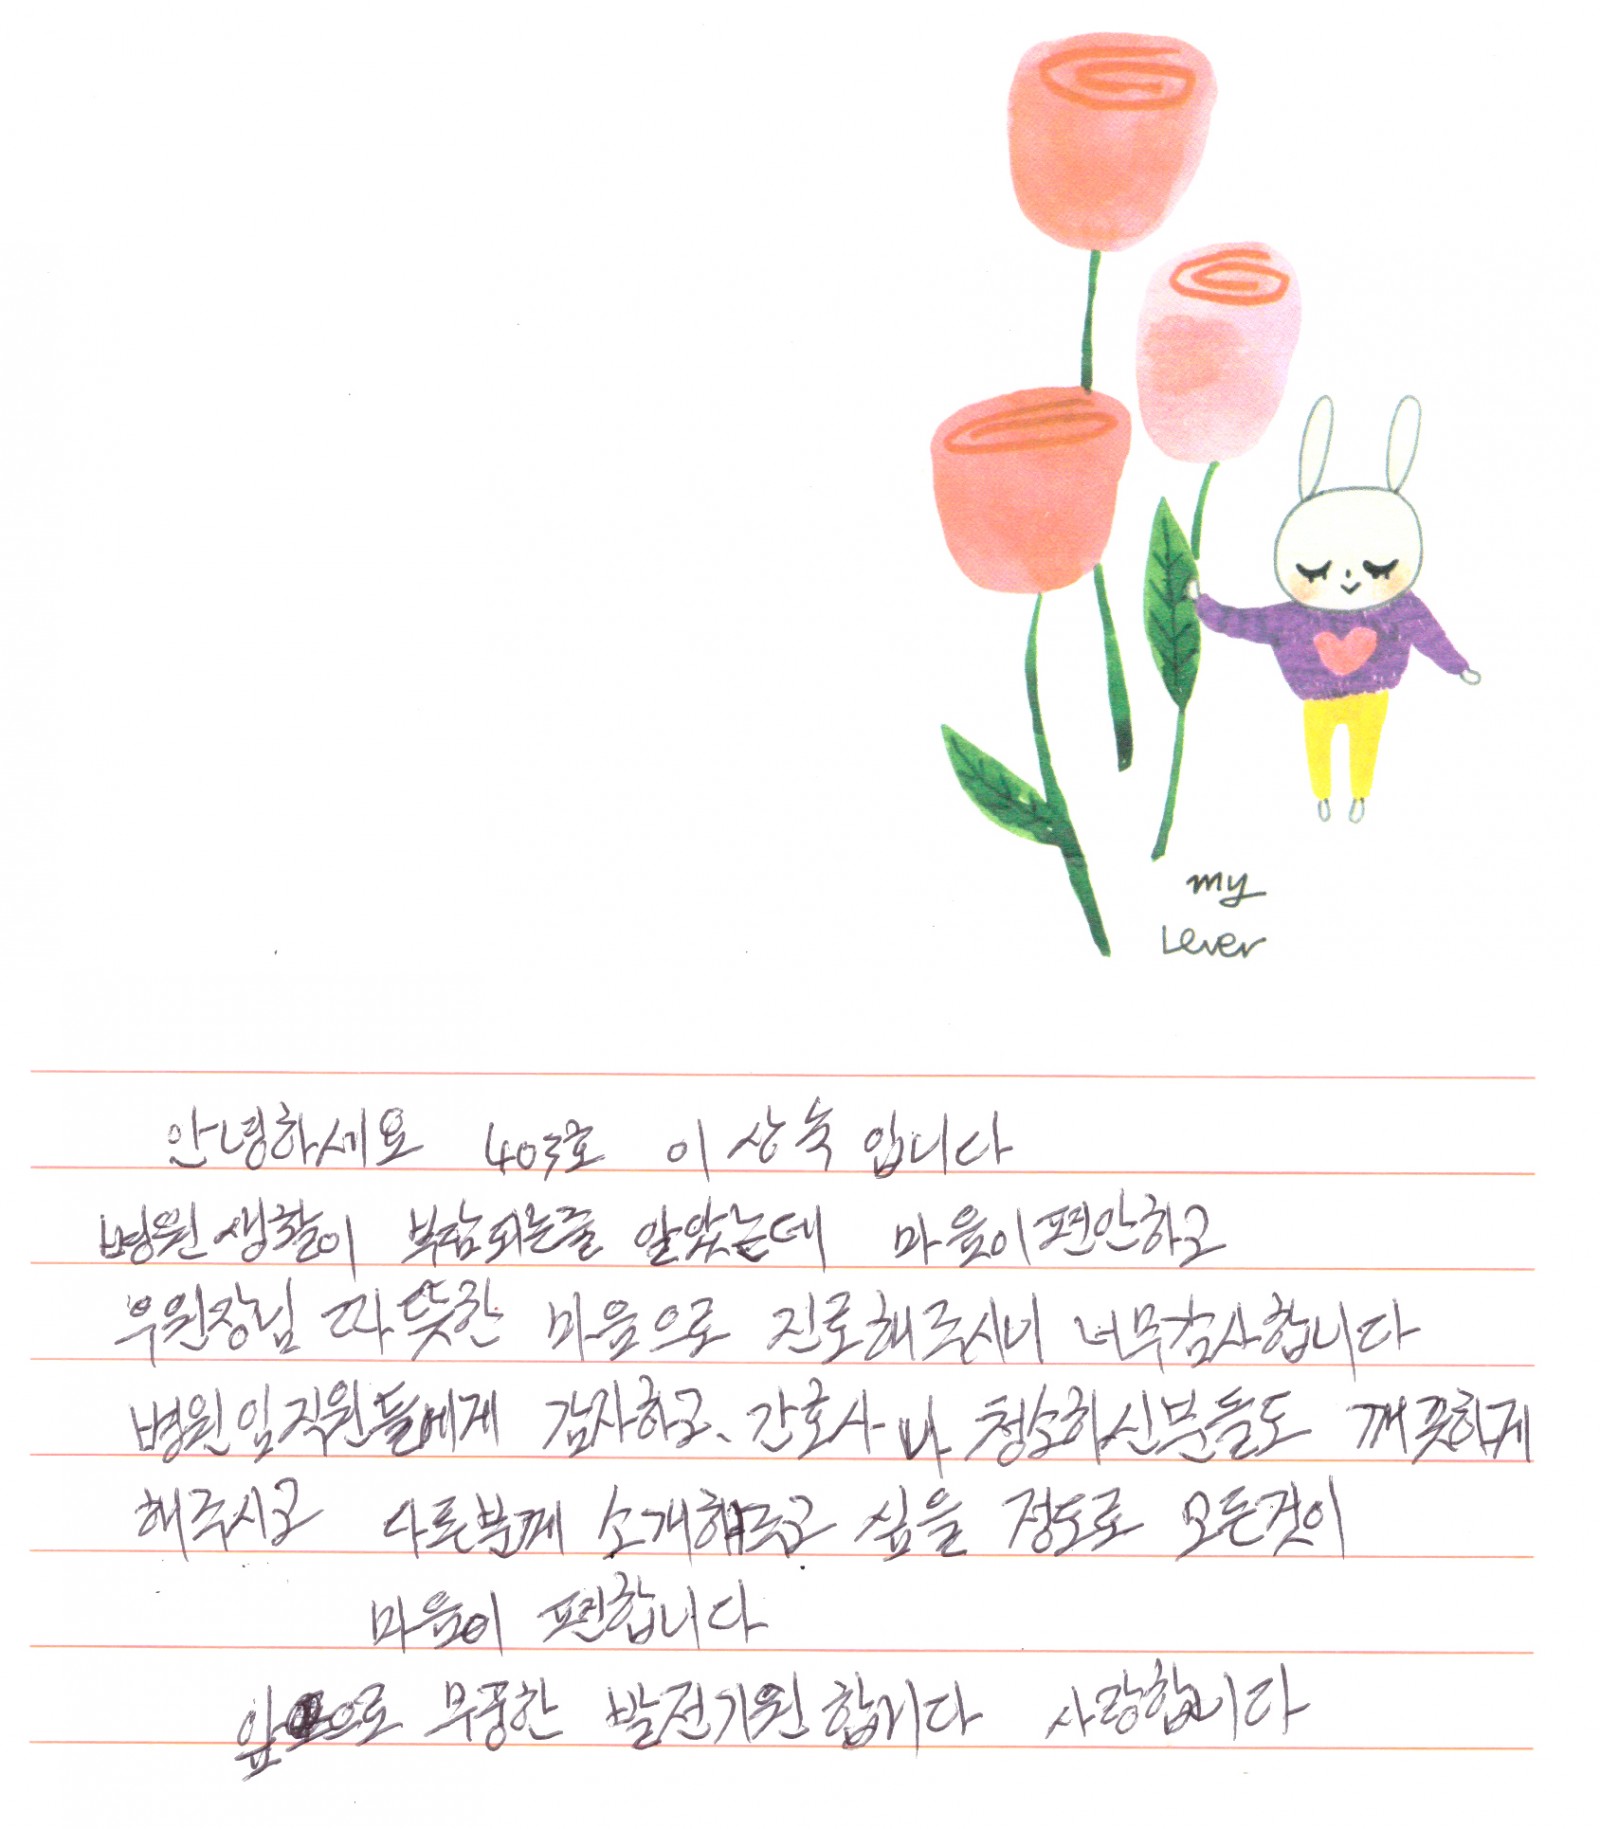 my
Lever
안녕하세요 403호 이상숙입니다
병원생활이 부담되는줄 알았는데 마음이편안하고
부원장님 따뜻한 마음으로 진료해주시니 너무감사합니다
병원임직원들에게 감사하고、간호사나 청소하신분들도 깨끗하게
해주시고 다른분께 소개해주고 싶을 정도로 모든것이
마음이 편합니다
앞으로 무궁한 발전기원합니다 사랑합니다